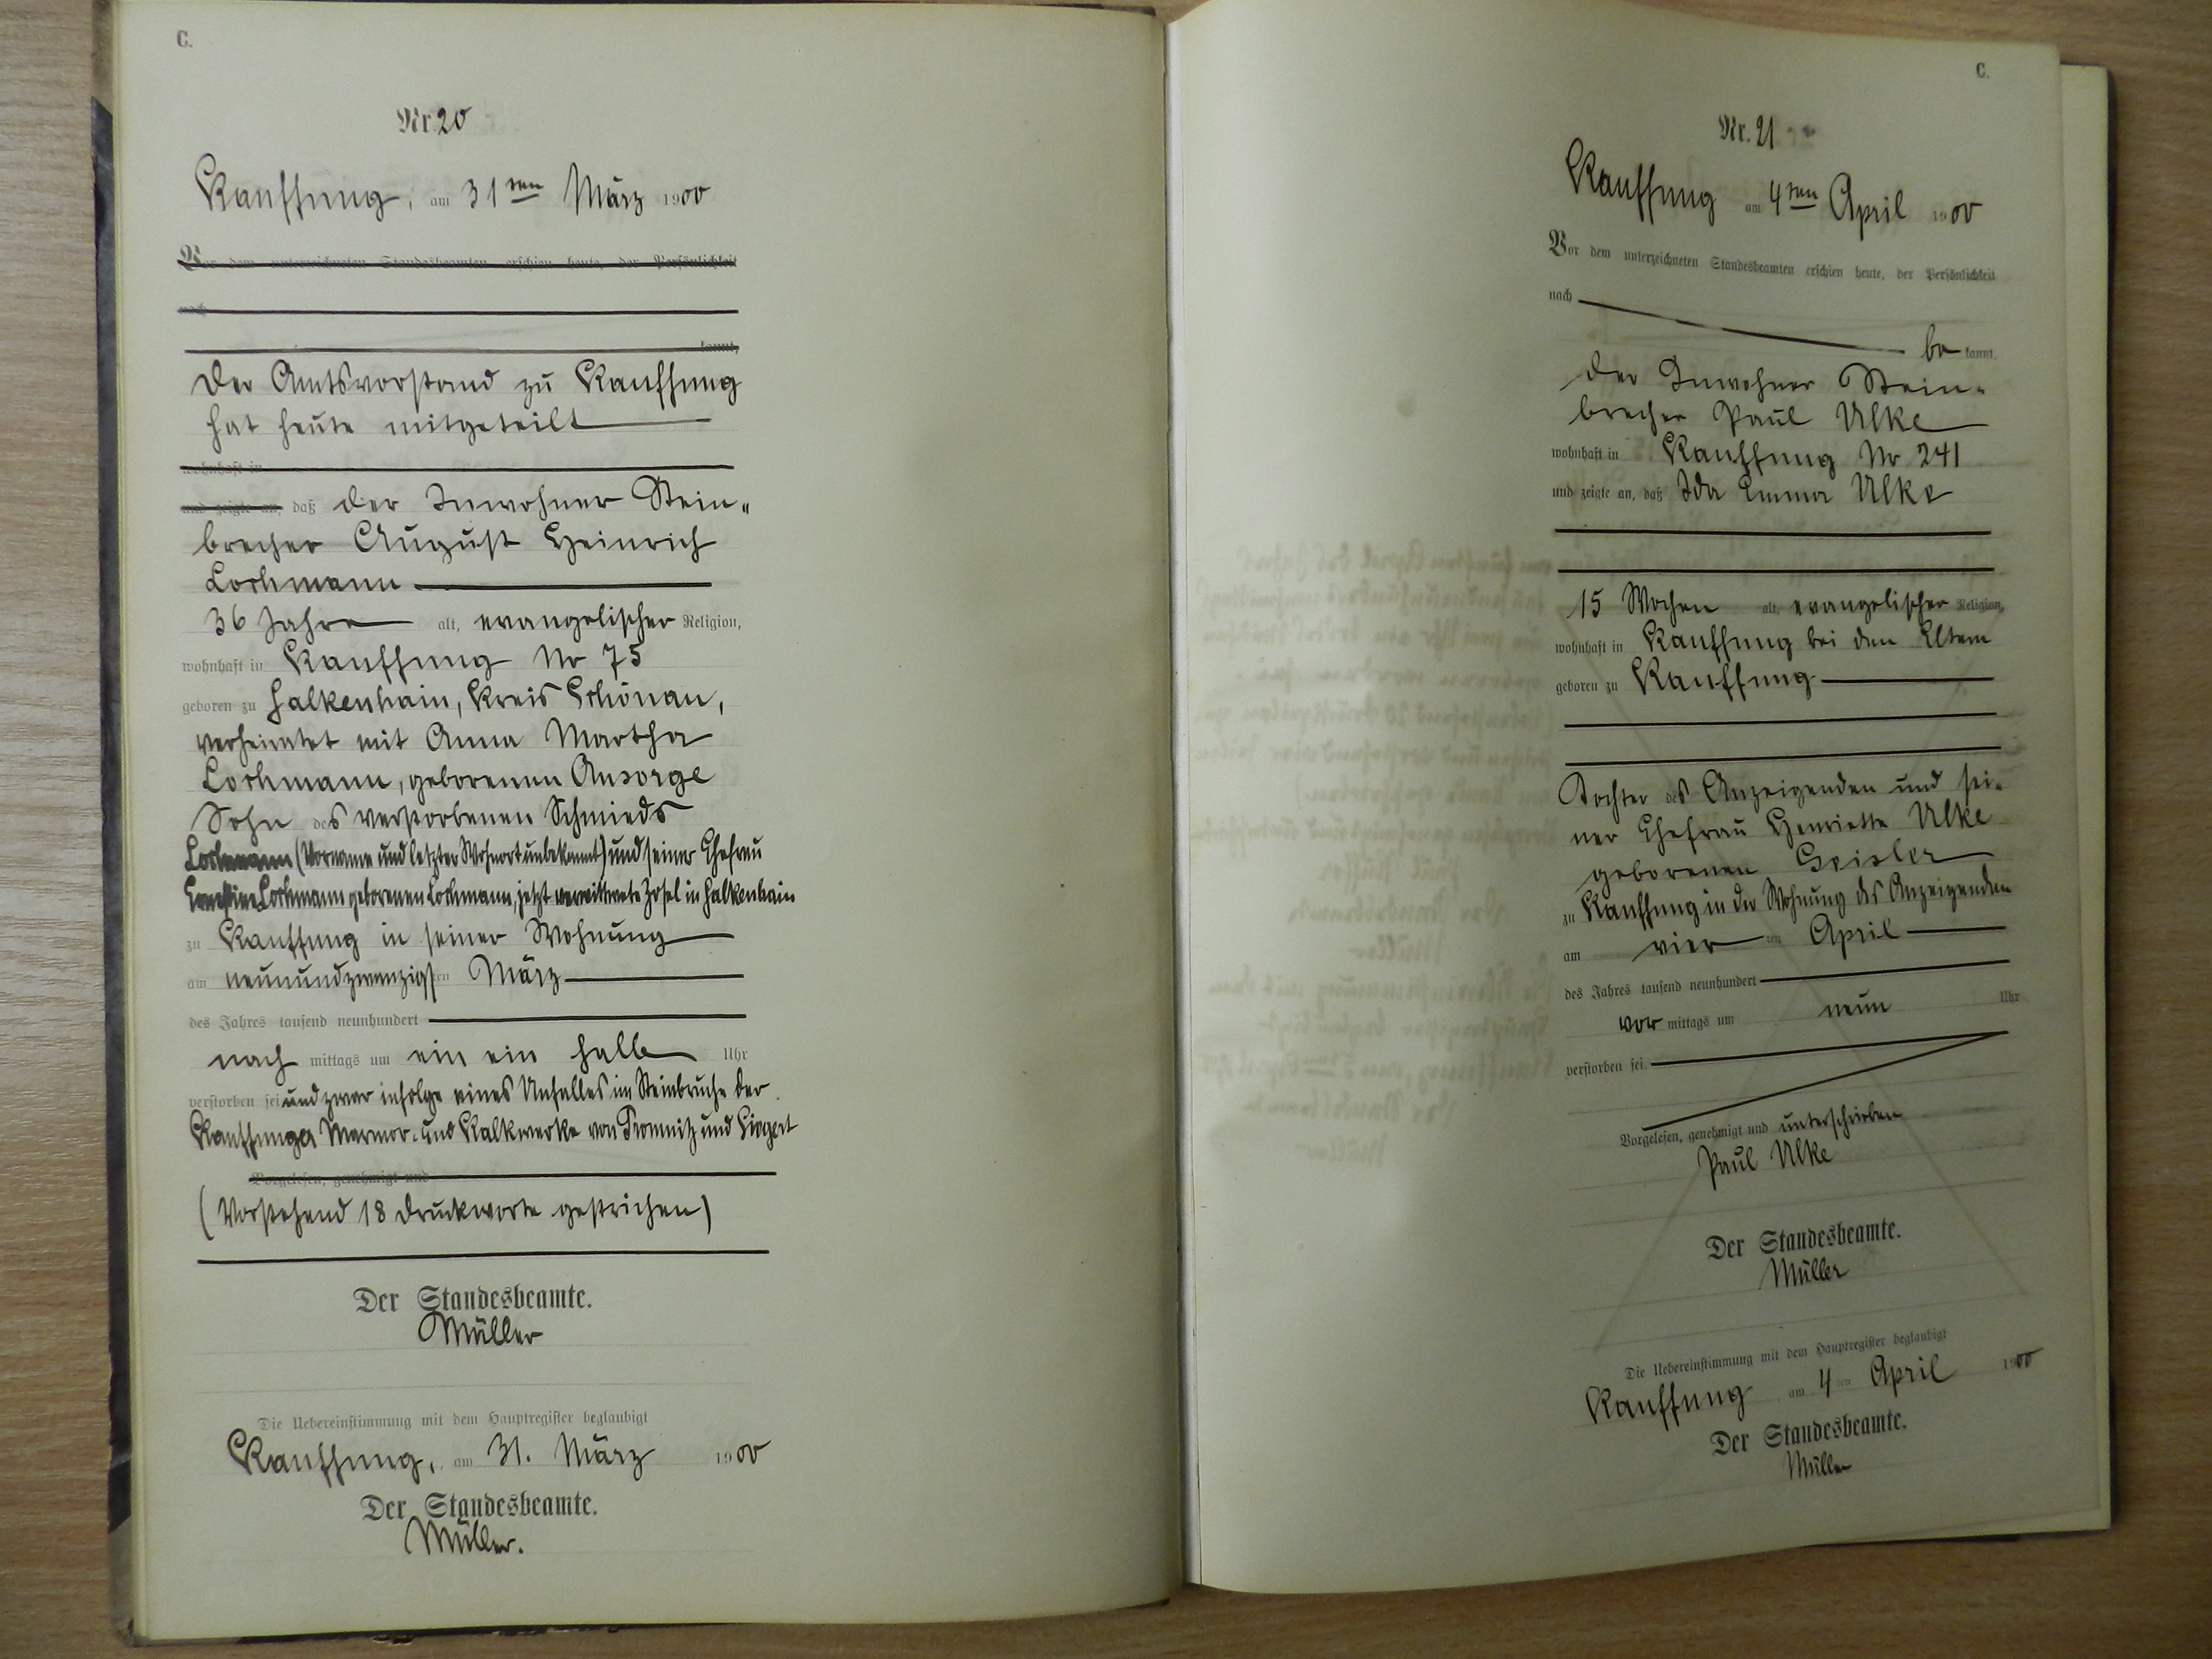 C.
Nr. 20
Kauffung, am 31ten März 1900
Vor dem unterzeichneten Standesbeamten erschien heute, der Persönlichkeit
nach
kannt,
Der Amtsvorstand zu Kauffung
hat heute mitgeteilt
wohnhaft in
und zeigte an, daß der Inwohner Stein-
brecher August Heinrich
Lochmann
36 Jahre alt, evangelischer Religion,
wohnhaft in Kauffung No 75
geboren zu Falkenhain, Kreis Schönau,
verheiratet mit Anna Martha
Lochmann, geborenen Ansorge
Sohn des verstorbenen Schmieds
Lochmann (Vorname und letzter Wohnort unbekannt) und seiner Ehefrau
Ernestine Lochmann geborenen Lochmann, jetzt verwittwete Zosel in Falkenhain
zu Kauffung in seiner Wohnung
am neunundzwanzigsten März
des Jahres tausend neunhundert
nach mittags um ein ein halb Uhr
verstorben sei und zwar infolge eines Unfalles im Steinbruche der
Kauffunger Marmor- und Kalkwerke von Tromnitz und Siegert
Vorgelesen, genehmigt und
(Vorstehend 18 Druckworte gestrichen)
Der Standesbeamte.
Müller
Die Uebereinstimmung mit dem Hauptregister beglaubigt
Kauffung, am 31. März 1900
Der Standesbeamte.
Müller.
C.
Nr. 21
Kauffung am 4ten April 1900
Vor dem unterzeichneten Standesbeamten erschien heute, der Persönlichkeit
nach
be kannt,
der Inwohner Stein-
brecher Paul Ulke
wohnhaft in Kauffung No 241
und zeigte an, daß Ida Emma Ulke
15 Wochen alt, evangelischer Religion,
wohnhaft in Kauffung bei den Eltern
geboren zu Kauffung
Tochter des Anzeigenden und sei-
ner Ehefrau Henriette Ulke
geborenen Geisler
zu Kauffung in der Wohnung des Anzeigenden
am vier ten April
des Jahres tausend neunhundert
vor mittags um neun Uhr
verstorben sei.
Vorgelesen, genehmigt und unterschrieben
Paul Ulke
Der Standesbeamte.
Müller
Die Uebereinstimmung mit dem Hauptregister beglaubigt
Kauffung am 4 ten April 1900
Der Standesbeamte.
Müller